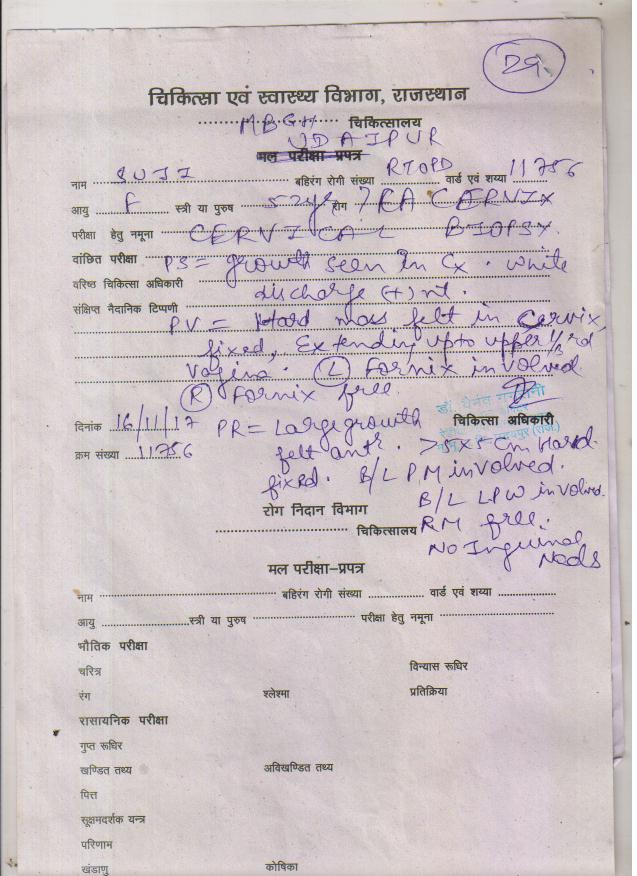 Dg.
चिकित्सा एवं स्वास्थ्य विभाग, राजस्थान
M.B.G.H चिकित्सालय
UDAIPUR
मल परीक्षा प्रपत्र
नाम SUJI बहिरंग रोगी संख्या RTOPD वार्ड एवं शय्या 11756
आयु F स्त्री या पुरुष 52yr रोग ? CA CERVIX
परीक्षा हेतु नमूना CERVICAL BIOPSY.
वांछित परीक्षा PS = growth seen in Cx. white
वरिष्ठ चिकित्सा अधिकारी discharge (+) nt.
संक्षिप्त नैदानिक टिप्पणी
PV = Hard mass felt in Cervix,
fixed, Extending upto upper 1/3rd
vagina. (L) Fornix involved
(R) Fornix free.
दिनांक 16/11/17 PR = Large growth चिकित्सा अधिकारी
क्रम संख्या 11756 felt antr. >5x5 cm Hard.
fixed. B/L PM involved.
रोग निदान विभाग B/L LPW involved.
चिकित्सालय RM free.
No Inguinal
Nods
मल परीक्षा-प्रपत्र
नाम बहिरंग रोगी संख्या वार्ड एवं शय्या
आयु स्त्री या पुरुष परीक्षा हेतु नमूना
भौतिक परीक्षा
चरित्र विन्यास रूधिर
रंग श्लेश्मा प्रतिक्रिया
रासायनिक परीक्षा
गुप्त रूधिर
खण्डित तथ्य अविखण्डित तथ्य
पित्त
सूक्षमदर्शक यन्त्र
परिणाम
खंडाणु कोषिका